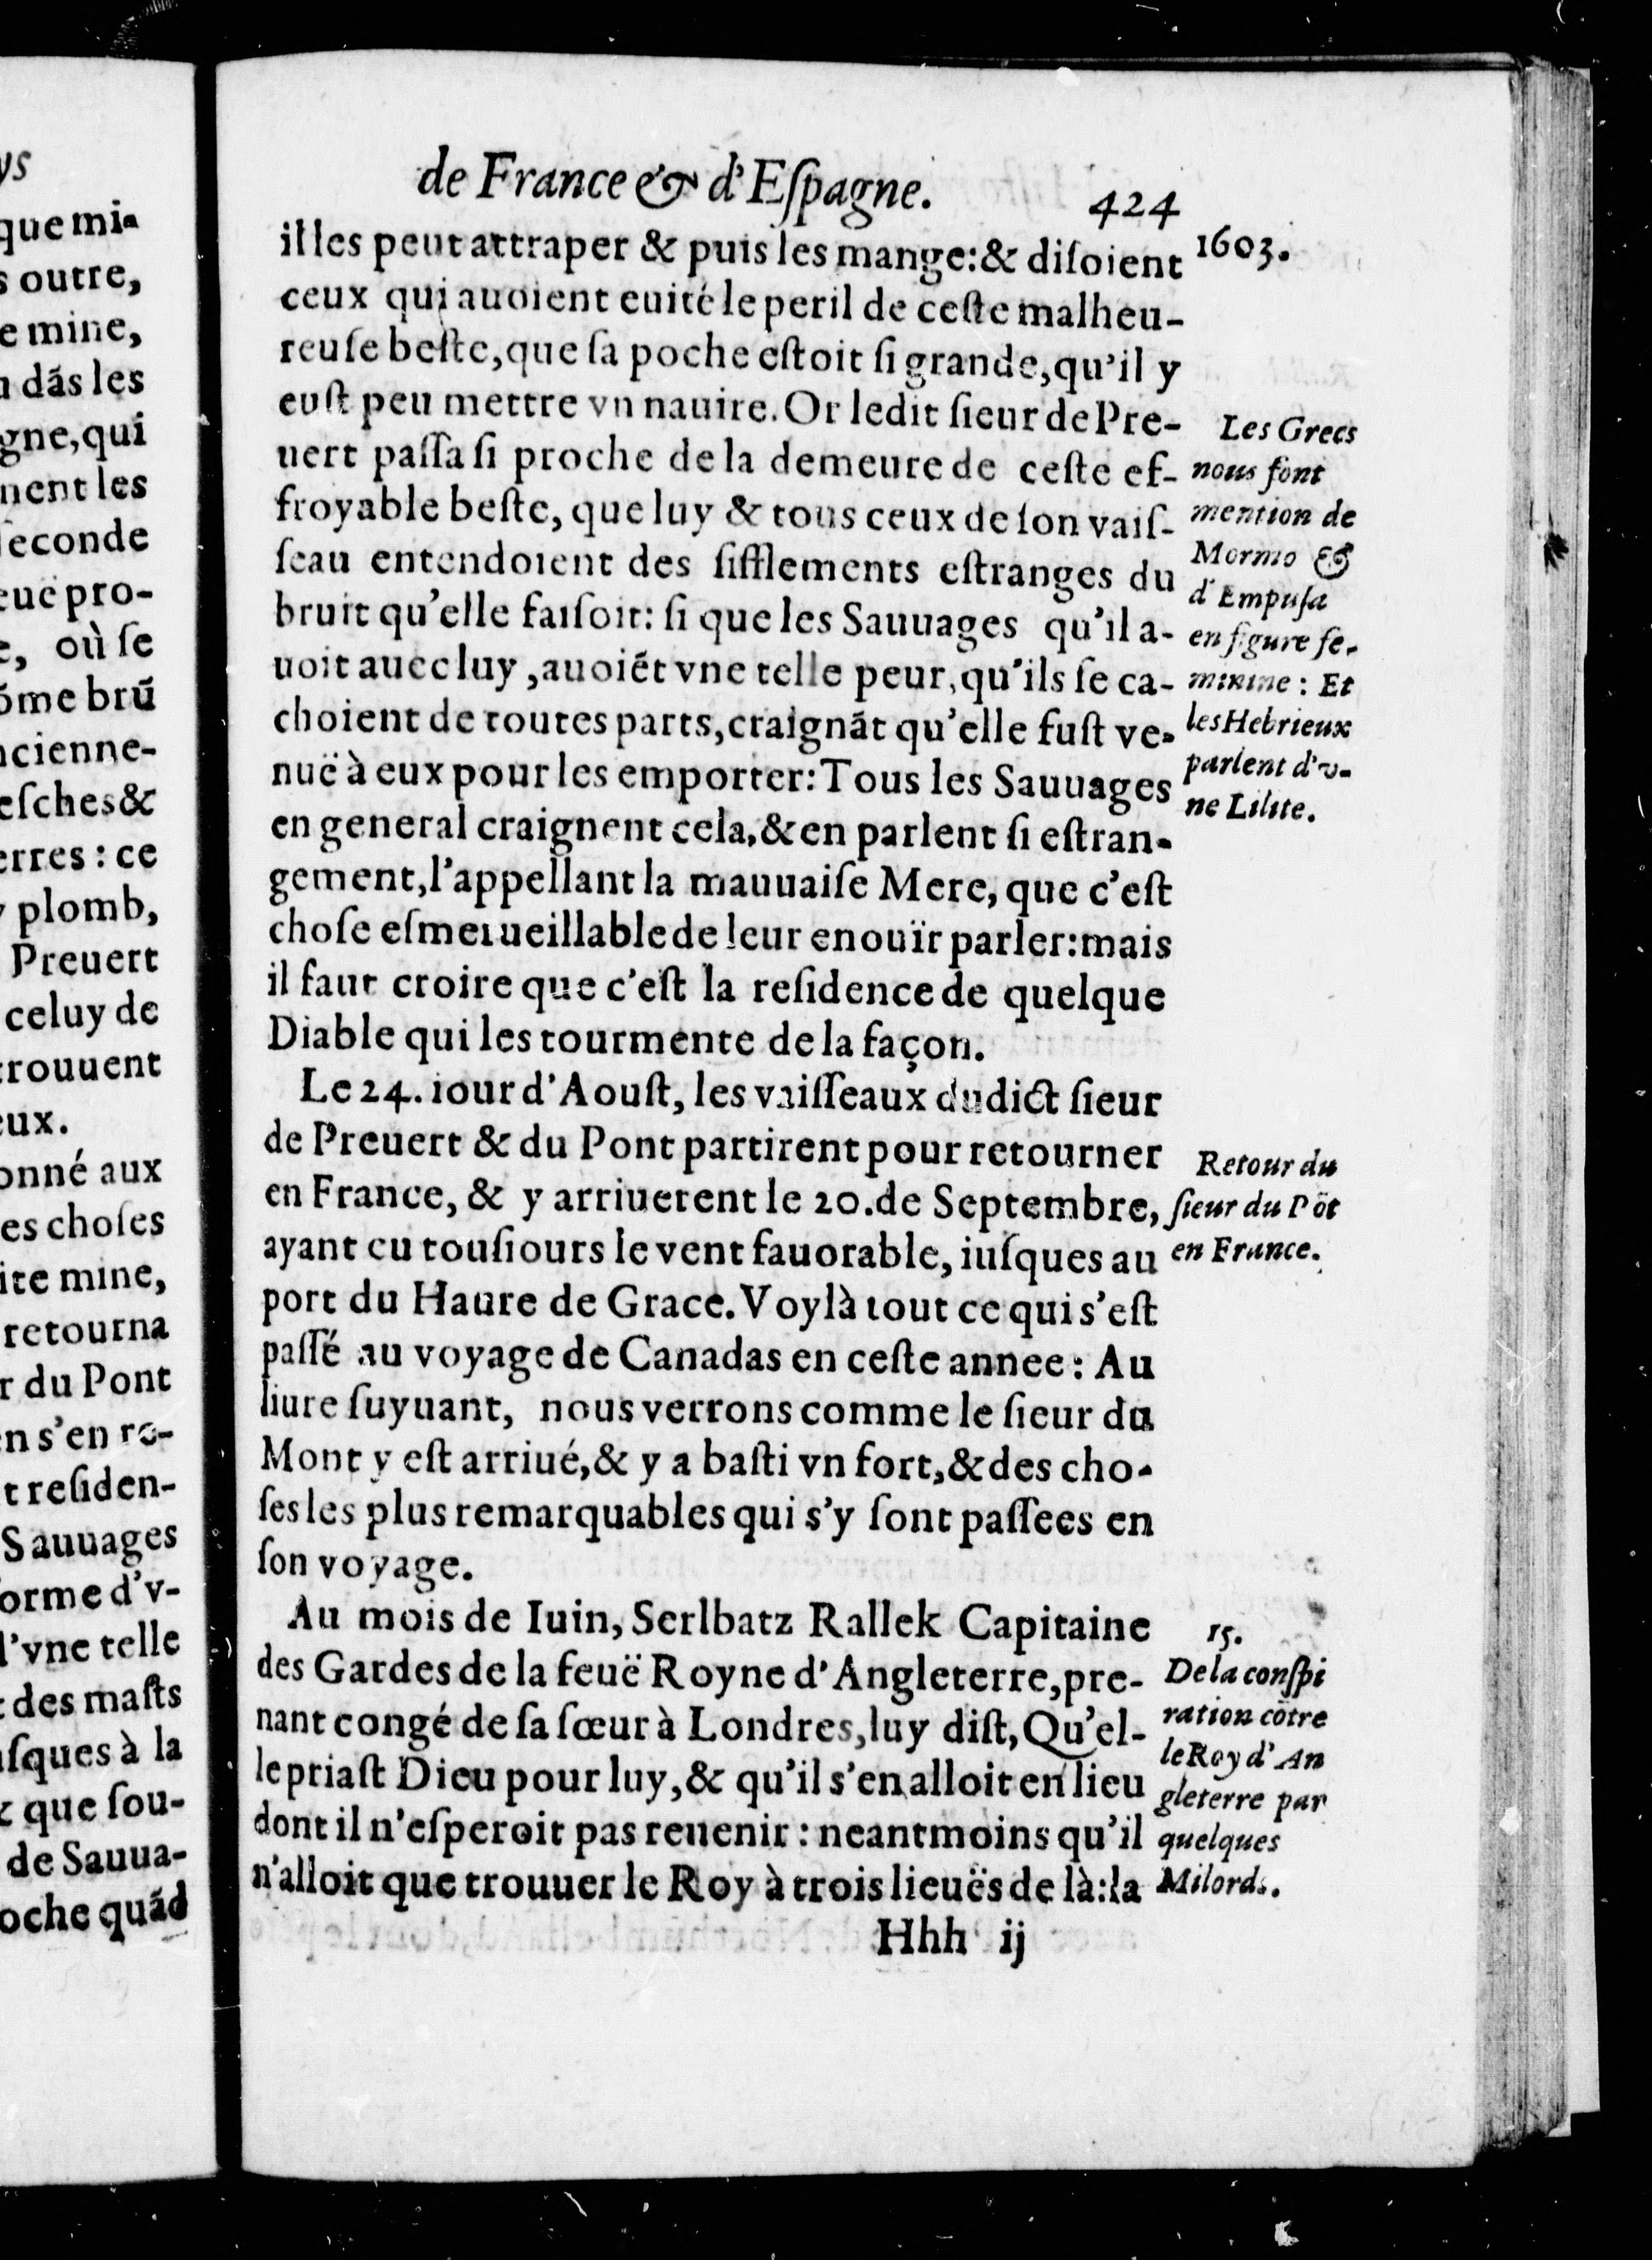 ys
que mi-
s outre,
e mine,
u dãs les
gne, qui
nent les
ſeconde
euë pro-
e, où ſe
õme brũ
ncienne-
eſches &
erres : ce
y plomb,
Preuert
celuy de
trouuent
eux.
onné aux
es choſes
ite mine,
retourna
r du Pont
en s'en re-
t reſiden-
Sauuages
forme d'v-
d'vne telle
t des maſts
uſques à la
& que ſou-
de Sauua-
oche quãd
de France & d'Eſpagne. 424
1603.
il les peut attraper & puis les mange: & diſoient
ceux qui auoient euité le peril de ceſte malheu-
reuſe beſte, que ſa poche eſtoit ſi grande, qu'il y
euſt peu mettre vn nauire. Or ledit ſieur de Pre-
uert paſſa ſi proche de la demeure de ceſte ef-
froyable beſte, que luy & tous ceux de ſon vaiſ-
ſeau entendoient des ſifflements eſtranges du
bruit qu'elle faiſoit: ſi que les Sauuages qu'il a-
uoit auec luy, auoiẽt vne telle peur, qu'ils ſe ca-
choient de toutes parts, craignãt qu'elle fuſt ve-
nuë à eux pour les emporter: Tous les Sauuages
en general craignent cela, & en parlent ſi eſtran-
gement, l'appellant la mauuaiſe Mere, que c'eſt
choſe eſmerueillable de leur en ouïr parler: mais
il faut croire que c'eſt la reſidence de quelque
Diable qui les tourmente de la façon.
Les Grecs
nous font
mention de
Mormo &
d'Empuſa
en figure fe-
minine : Et
les Hebrieux
parlent d'v-
ne Lilite.
Le 24. iour d'Aouſt, les vaiſſeaux dudict ſieur
de Preuert & du Pont partirent pour retourner
en France, & y arriuerent le 20. de Septembre,
ayant eu touſiours le vent fauorable, iuſques au
port du Haure de Grace. Voylà tout ce qui s'eſt
paſſé au voyage de Canadas en ceſte annee : Au
liure ſuyuant, nous verrons comme le ſieur du
Mont y eſt arriué, & y a baſti vn fort, & des cho-
ſes les plus remarquables qui s'y ſont paſſees en
ſon voyage.
Retour du
ſieur du Põt
en France.
Au mois de Iuin, Serlbatz Rallek Capitaine
des Gardes de la feuë Royne d'Angleterre, pre-
nant congé de ſa ſœur à Londres, luy diſt, Qu'el-
le priaſt Dieu pour luy, & qu'il s'en alloit en lieu
dont il n'eſperoit pas reuenir : neantmoins qu'il
n'alloit que trouuer le Roy à trois lieuës de là: la
15.
De la conſpi
ration cõtre
le Roy d'An
gleterre par
quelques
Milords.
Hhh ij